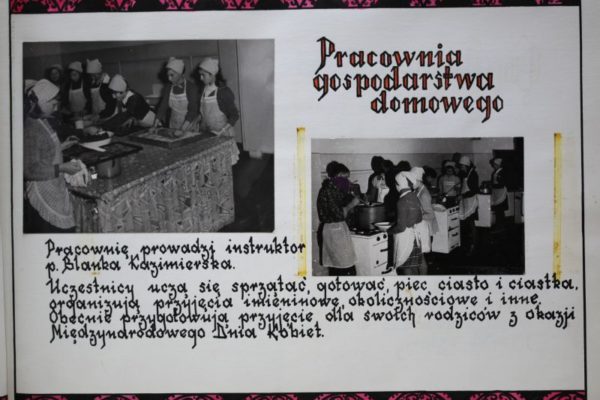 Pracownia
gospodarstwa
domowego
Pracownię prowadzi instruktor
p. Blanka Kazimierska.
Uczestnicy uczą się sprzątać, gotować, piec ciasto i ciastka,
organizują przyjęcia imieninowe, okolicznościowe i inne.
Obecnie przygotowują przyjęcie dla swoich rodziców z okazji
Międzynarodowego Dnia Kobiet.